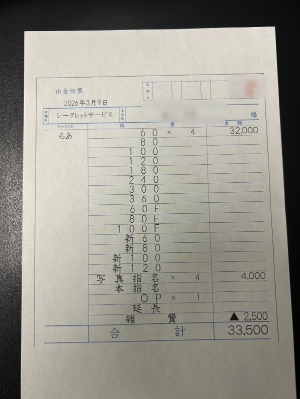 出金伝票
2026年3月9日
シークレットサービス 様
摘要 金額
るあ 60 × 4 32,000
80
100
120
180
240
300
360
60F
80F
100F
新60
新80
新100
新120
写真指名 × 4 4,000
本指名
OP × 1
延長
雑費 ▲2,500
合計 33,500